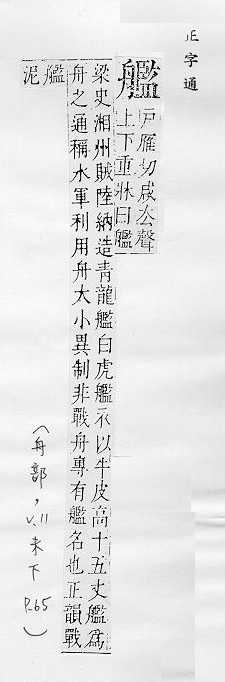 正字通
艦
戸雁切咸厺聲
上下重牀曰艦
梁史湘州賊陸納造青龍艦白虎艦衣以牛皮高十五丈艦爲
舟之通稱水軍利用舟大小異制非戰舟專有艦名也正韻戰
艦
泥
(舟部, v.11 未下 P.65)